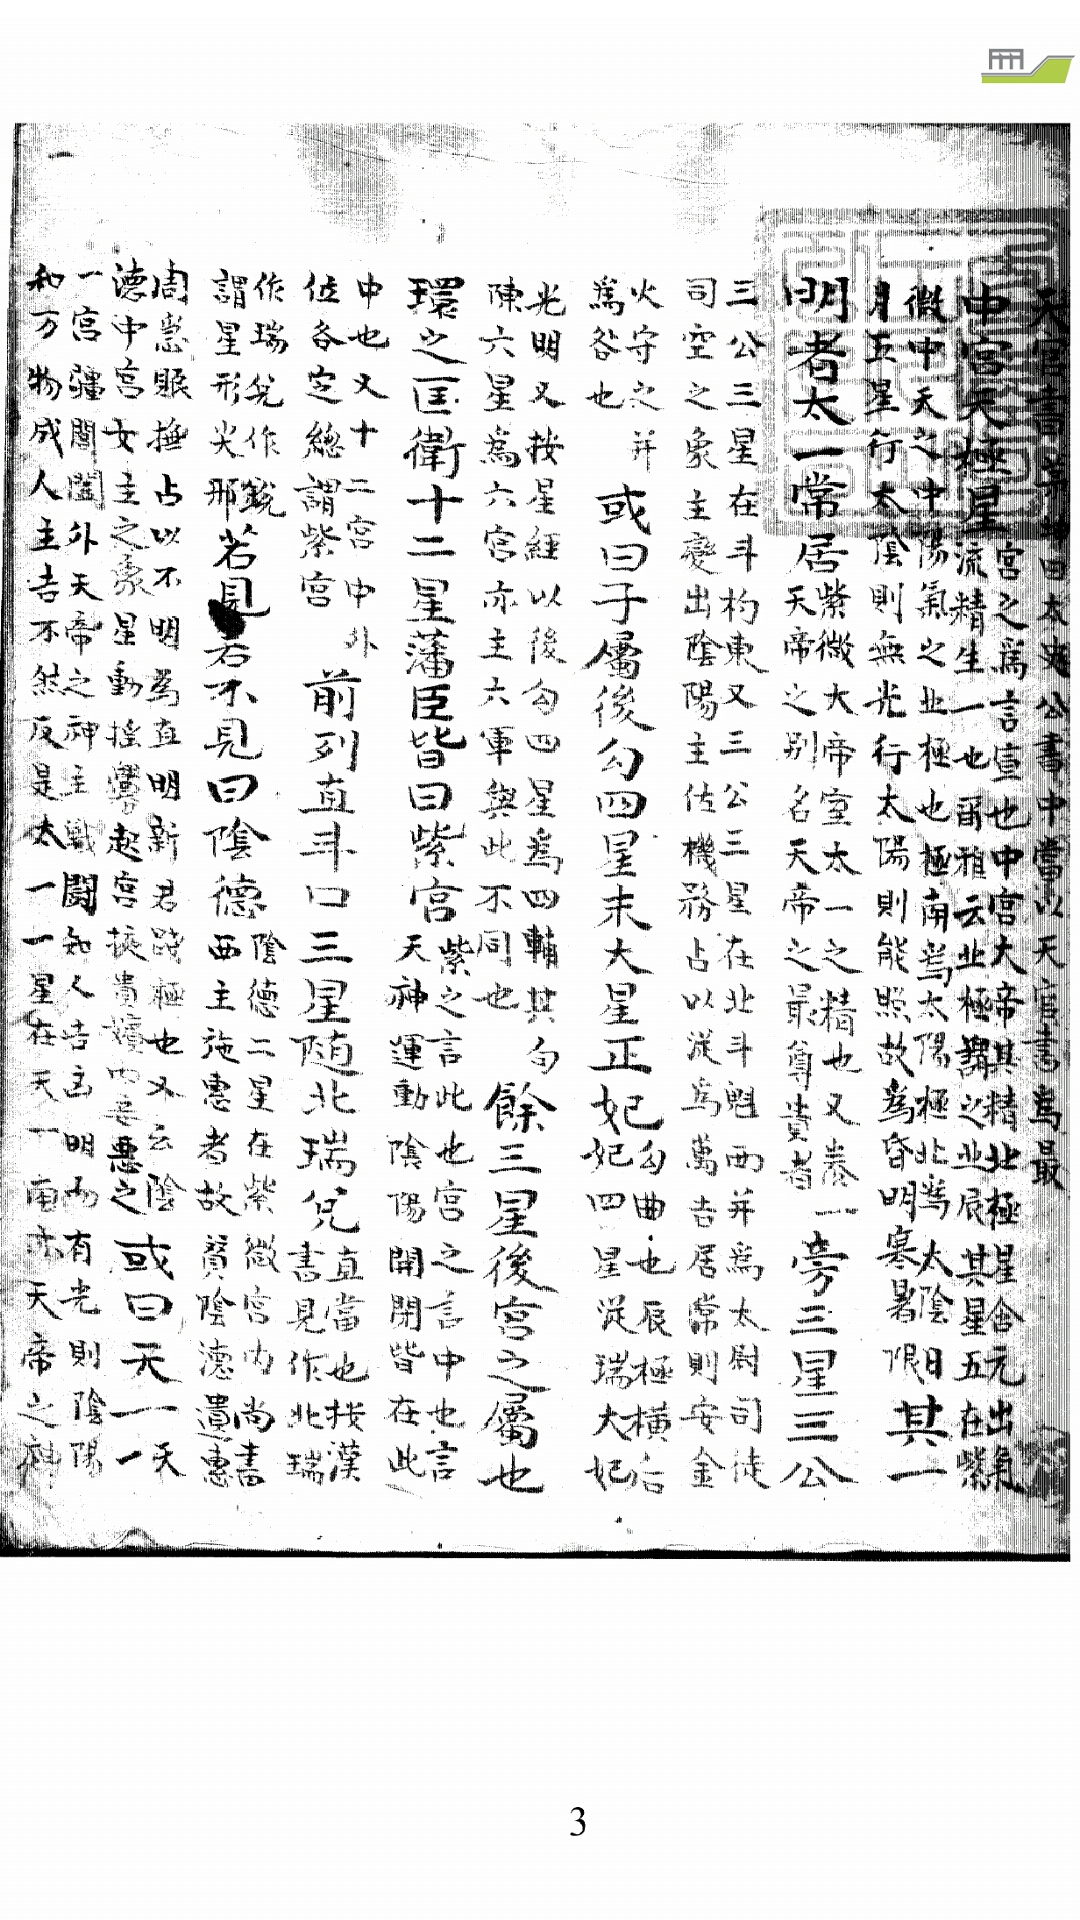 天官書 曰太史公書中當以天官書為最
中宮天極星宮之為言宣也中宮大帝其精北極星含元出氣
流精生一也爾雅云北極謂之北辰其星五在紫
微中天之中陽氣之北極也極南為太陽極北為太陰日
月五星行太陰則無光行太陽則能照故為昏明寒暑限其一
明者太一常居紫微大帝室太一之精也又泰一
天帝之別名天帝之最尊貴者旁三星三公
三公三星在斗杓東又三公三星在北斗魁西并為太尉司徒
司空之象主變出陰陽主佐機務占以從為萬吉居常則安金
火守之并
為咎也或曰子屬後勾四星末大星正妃勾曲也辰極橫后
妃四星從瑞大妃
光明又按星經以後勾四星為四輔其句
陳六星為六宮亦主六軍與此不同也餘三星後宮之屬也
環之匡衛十二星藩臣皆曰紫宮紫之言此也宮之言中也言
天神運動陰陽開閉皆在此
中也又十二宮中外
位各定總謂紫宮前列直斗口三星随北瑞兌直當也按漢
書見作北瑞
作瑞兌作銳
謂星形尖邪若見若不見曰陰德陰德二星在紫微宮内尚書
西主施惠者故贫陰德遺惠
周惠賑撫占以不明為直明新君踐極也又云陰
德中宮女主之象星動搖釁起宮掖貴嬪内妾惡之或曰天一天一
一宮疆閶闔外天帝之神主戰鬪知人吉凶明而有光則陰陽
和万物成人主吉不然反是太一一星在天一南亦天帝之神
一
3